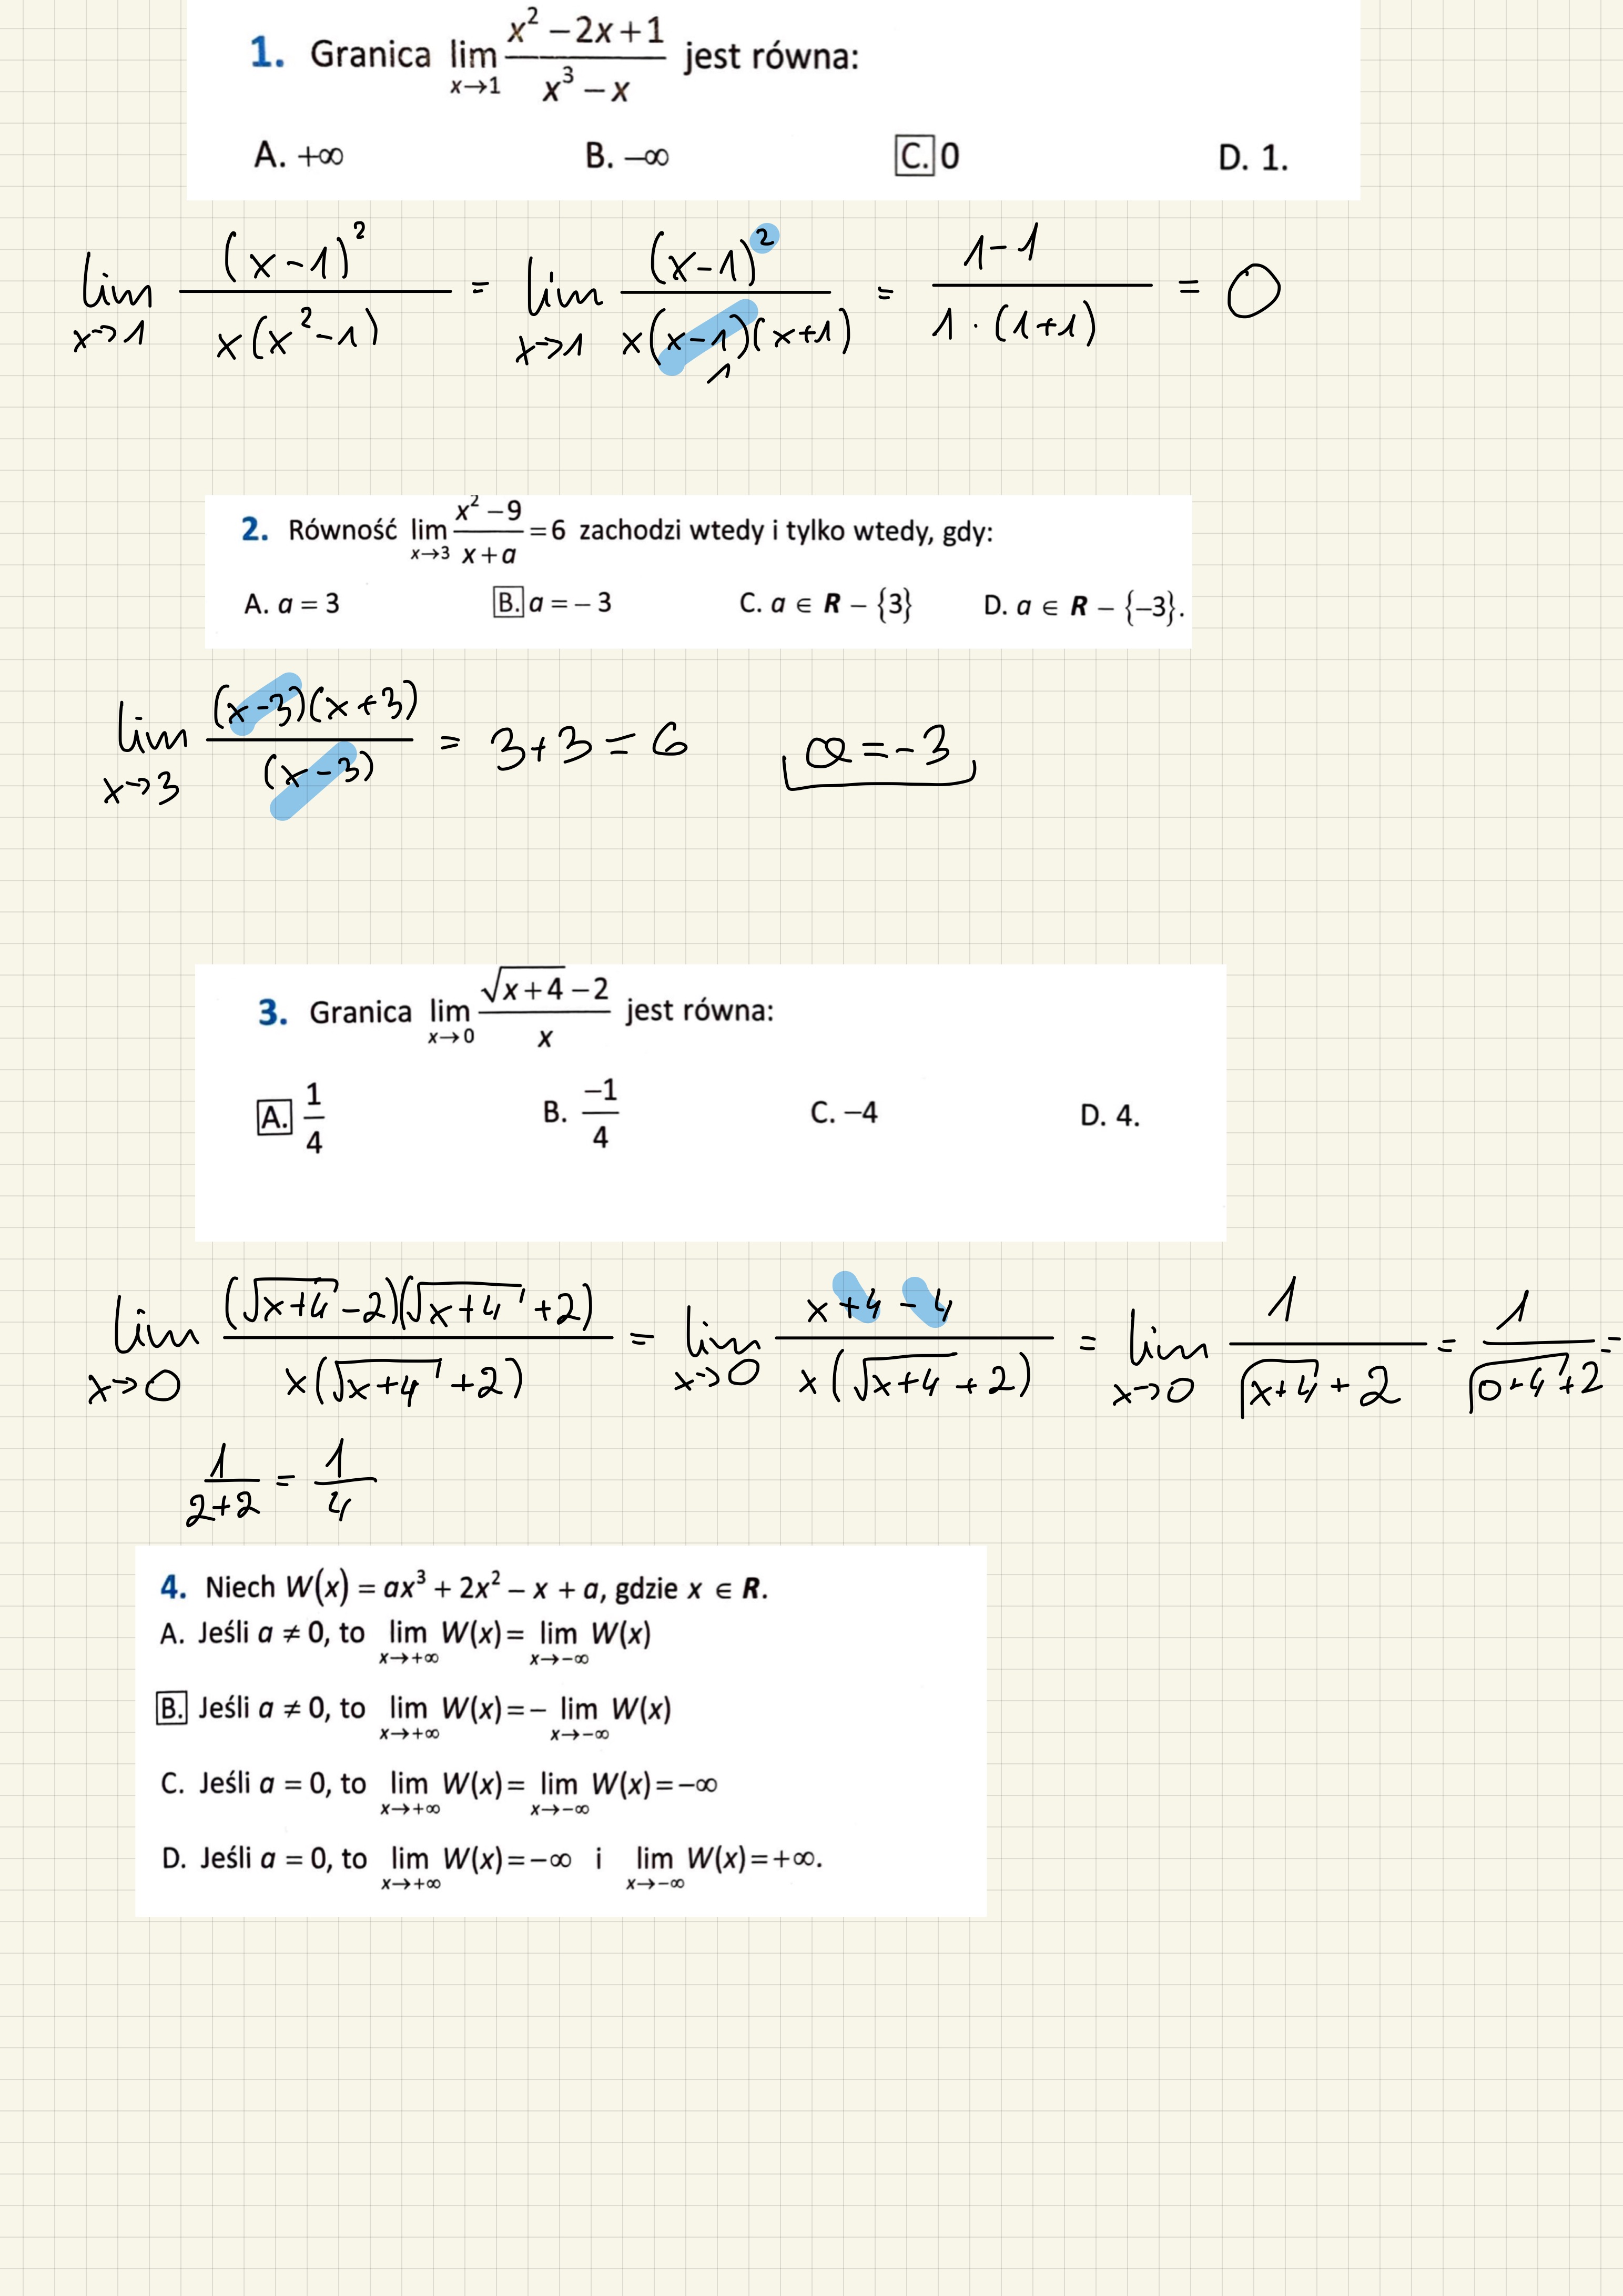 1. Granica lim x→1 (x² − 2x + 1)/(x³ − x) jest równa:
A. +∞ B. −∞ C. 0 D. 1.
lim x→1 (x−1)²/(x(x²−1)) = lim x→1 (x−1)²/(x(x−1)(x+1)) = (1−1)/(1·(1+1)) = 0
1
2. Równość lim x→3 (x² − 9)/(x + a) = 6 zachodzi wtedy i tylko wtedy, gdy:
A. a = 3 B. a = − 3 C. a ∈ R − {3} D. a ∈ R − {−3}.
lim x→3 ((x−3)(x+3))/(x−3) = 3+3 = 6 a = −3
3. Granica lim x→0 (√(x+4) − 2)/x jest równa:
A. 1/4 B. −1/4 C. −4 D. 4.
lim x→0 ((√(x+4) −2)(√(x+4) +2))/(x(√(x+4) +2)) = lim x→0 (x+4−4)/(x(√(x+4) +2)) = lim x→0 1/(√(x+4) + 2) = 1/(√(0+4) +2) =
1/(2+2) = 1/4
4. Niech W(x) = ax³ + 2x² − x + a, gdzie x ∈ R.
A. Jeśli a ≠ 0, to lim x→+∞ W(x) = lim x→−∞ W(x)
B. Jeśli a ≠ 0, to lim x→+∞ W(x) = − lim x→−∞ W(x)
C. Jeśli a = 0, to lim x→+∞ W(x) = lim x→−∞ W(x) = −∞
D. Jeśli a = 0, to lim x→+∞ W(x) = −∞ i lim x→−∞ W(x) = +∞.